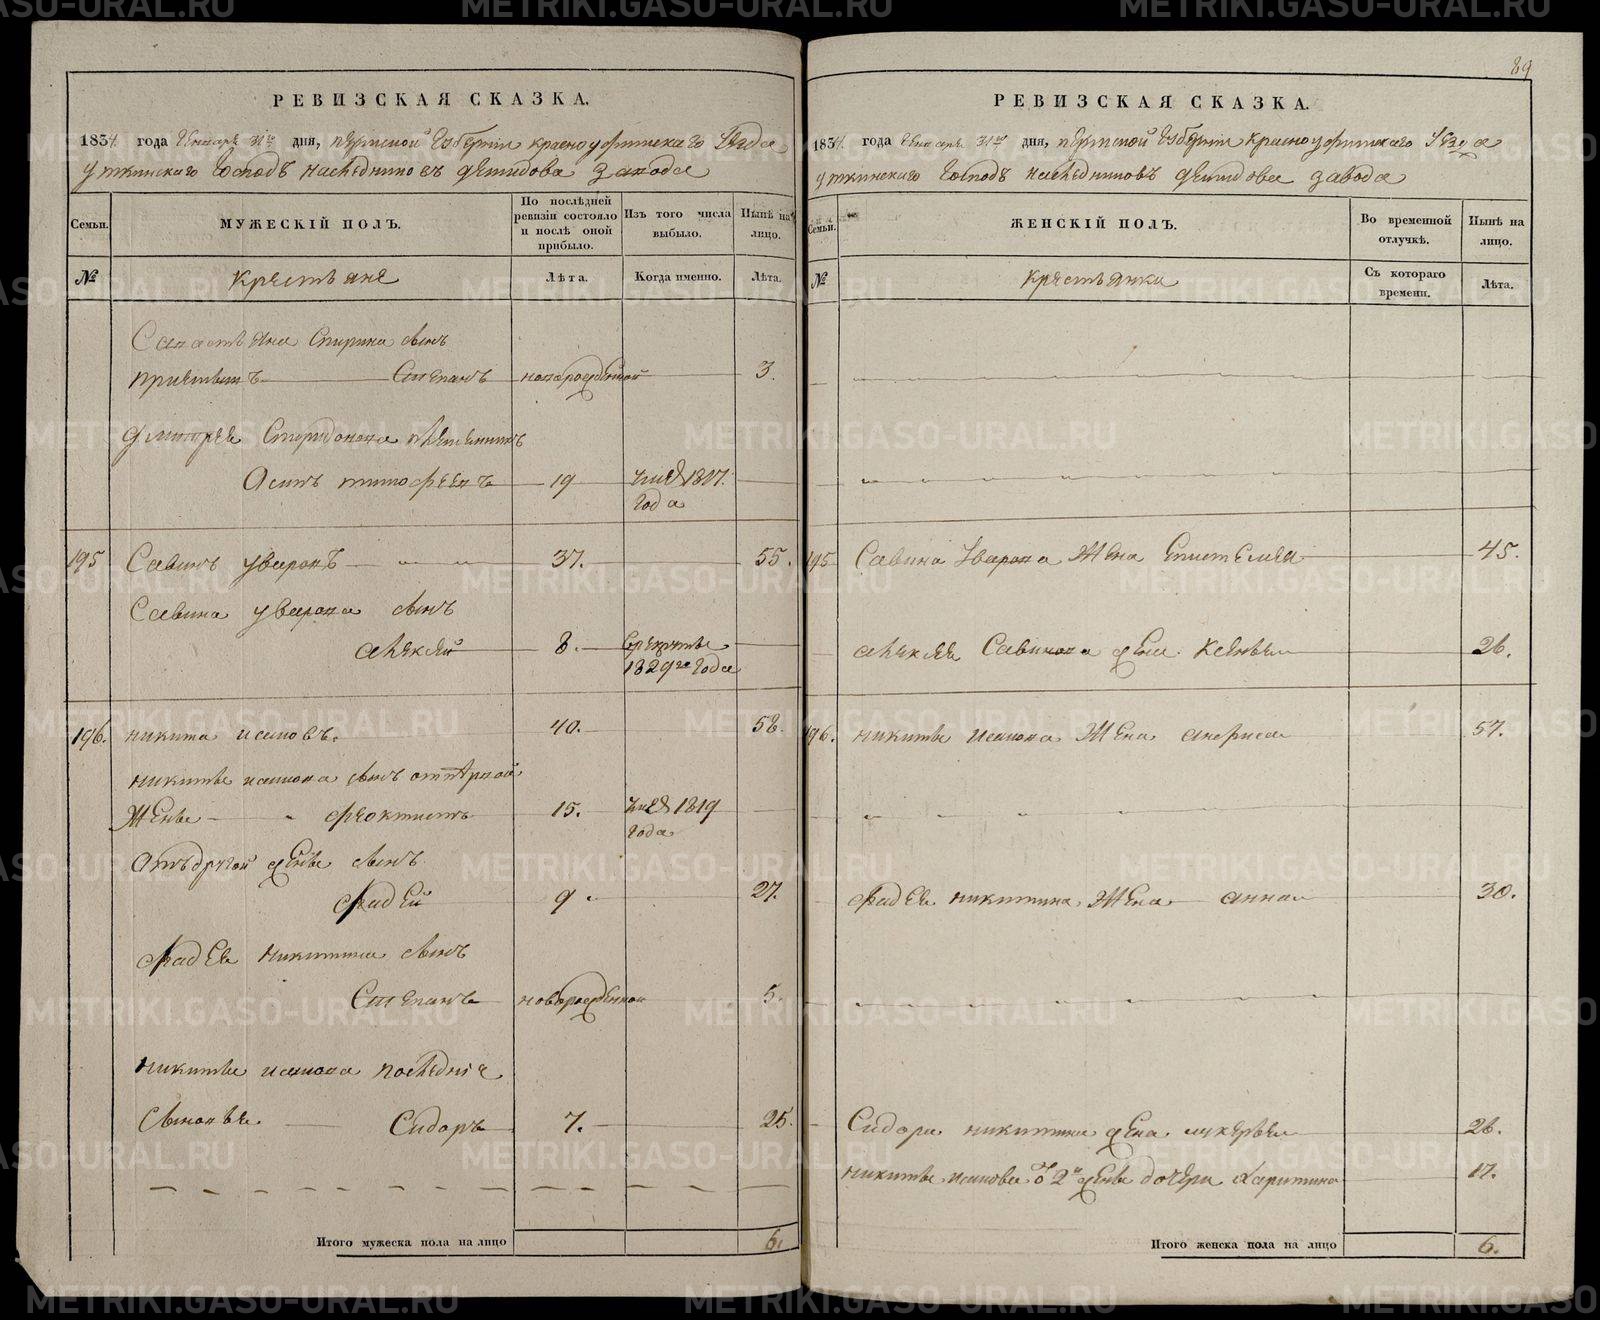 89
РЕВИЗСКАЯ СКАЗКА.
1834 года Генваря 31го дня, пермской Губернiи красноуфимскаго Уезда
уткинскаго Господъ наследниковъ демидова завода
Семьи. МУЖЕСКІЙ ПОЛЪ. По послѣдней ревизіи состояло и послѣ оной прибыло. Изъ того числа выбыло. Нынѣ на лицо.
№ Крестьяне Лѣта. Когда именно. Лѣта.
Савастьяна Спирина сынъ
приемышъ Степанъ новорожденной 3.
Дмитрея Спиридонова племянникъ
Осипъ тимофеевъ 19 1817.
года
195 Савинъ уваровъ 37. 55.
Савина уварова сынъ
алексей 8. в рекруты
1829го года
196. никита исаковъ. 40. 58.
никиты исакова сынъ от первой
жены феоктистъ 15. 1819
года
Отъ другой жены сынъ
фадей 9. 27.
фадея никитина сынъ
Степанъ новорожденной 5.
никиты исакова последнiе
сыновья Сидоръ 7. 25.
Итого мужеска пола на лицо 6.
РЕВИЗСКАЯ СКАЗКА.
1834 года Генваря 31го дня, пермской Губернiи красноуфимскаго Уезда
уткинскаго Господъ наследниковъ демидова завода
Семьи. ЖЕНСКІЙ ПОЛЪ. Во временной отлучкѣ. Нынѣ на лицо.
№ Крестьянки Съ котораго времени. Лѣта.
195 Савина Уварова Жена Епистемея 45.
алексея Савинова дочь 26.
196. никиты исакова Жена анфиса 57.
фадея никитина Жена анна 30.
Сидора никитина жена лукерья 26.
никиты исакова от 2й жены дочери Харитина 17.
Итого женска пола на лицо 6.
METRIKI.GASO-URAL.RU